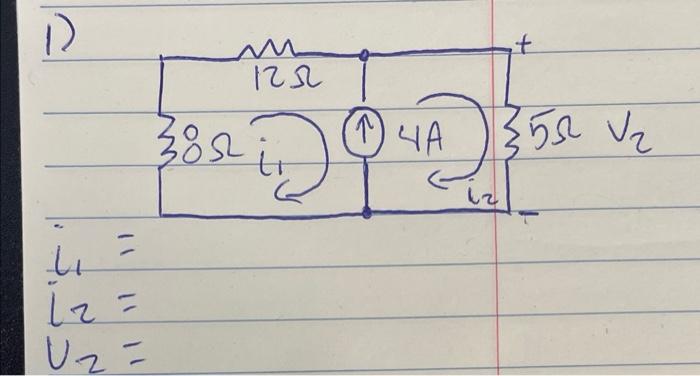 1)
+
12Ω
8Ω i₁ 4A 5Ω V₂
i₂
-
i₁ =
i₂ =
V₂ =